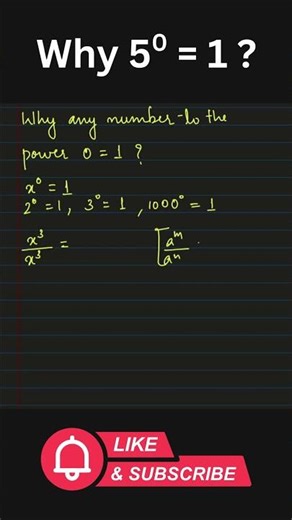 Why 5⁰ = 1 ?
Why any number to the
power 0 = 1 ?
x⁰ = 1
2⁰ = 1, 3⁰ = 1, 1000⁰ = 1
x³/x³ = [aᵐ/aⁿ
LIKE
& SUBSCRIBE